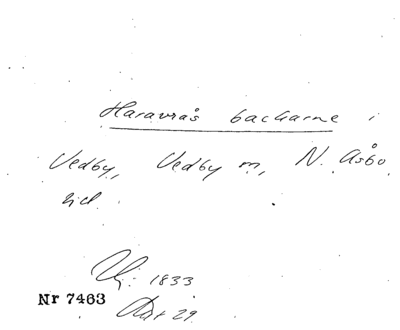 Haravrås backarne i
Vedby, Vedby sn, N. Åsbo
hd
Uj: 1833
Nr 7463
Akt 29